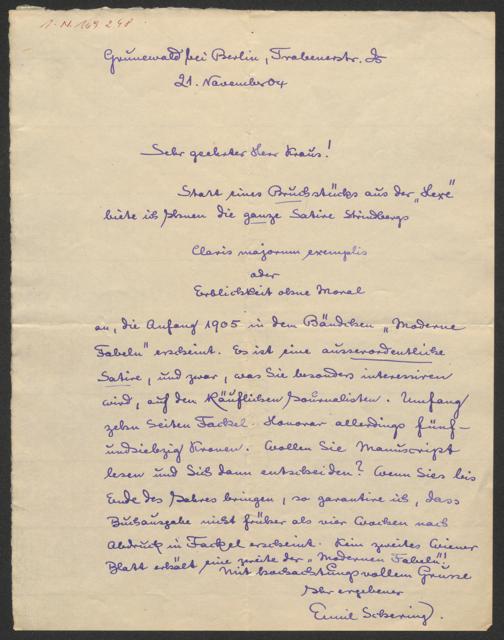 I.N. 169 248
Grunewald bei Berlin, Trabenerstr. 2
21. November 04
Sehr geehrter Herr Kraus!
Statt eines Bruchstücks aus der „Hexe“
biete ich Ihnen die ganze Satire Strindbergs
Claris majorum exemplis
oder
Erblichkeit ohne Moral
an, die Anfang 1905 in dem Bändchen „Moderne
Fabeln“ erscheint. Es ist eine ausserordentliche
Satire, und zwar, was Sie besonders interessiren
wird, auf den käuflichen Journalisten. Umfang
zehn Seiten Fackel. Honorar allerdings fünf-
undsiebzig Kronen. Wollen Sie Manuscript
lesen und Sich dann entscheiden? Wenn Sies bis
Ende des Jahres bringen, so garantire ich, dass
Buchausgabe nicht früher als vier Wochen nach
Abdruck in Fackel erscheint. Kein zweites Wiener
Blatt erhält eine zweite der „Modernen Fabeln“!
Mit hochachtungsvollem Grusse
Ihr ergebener
Emil Schering.